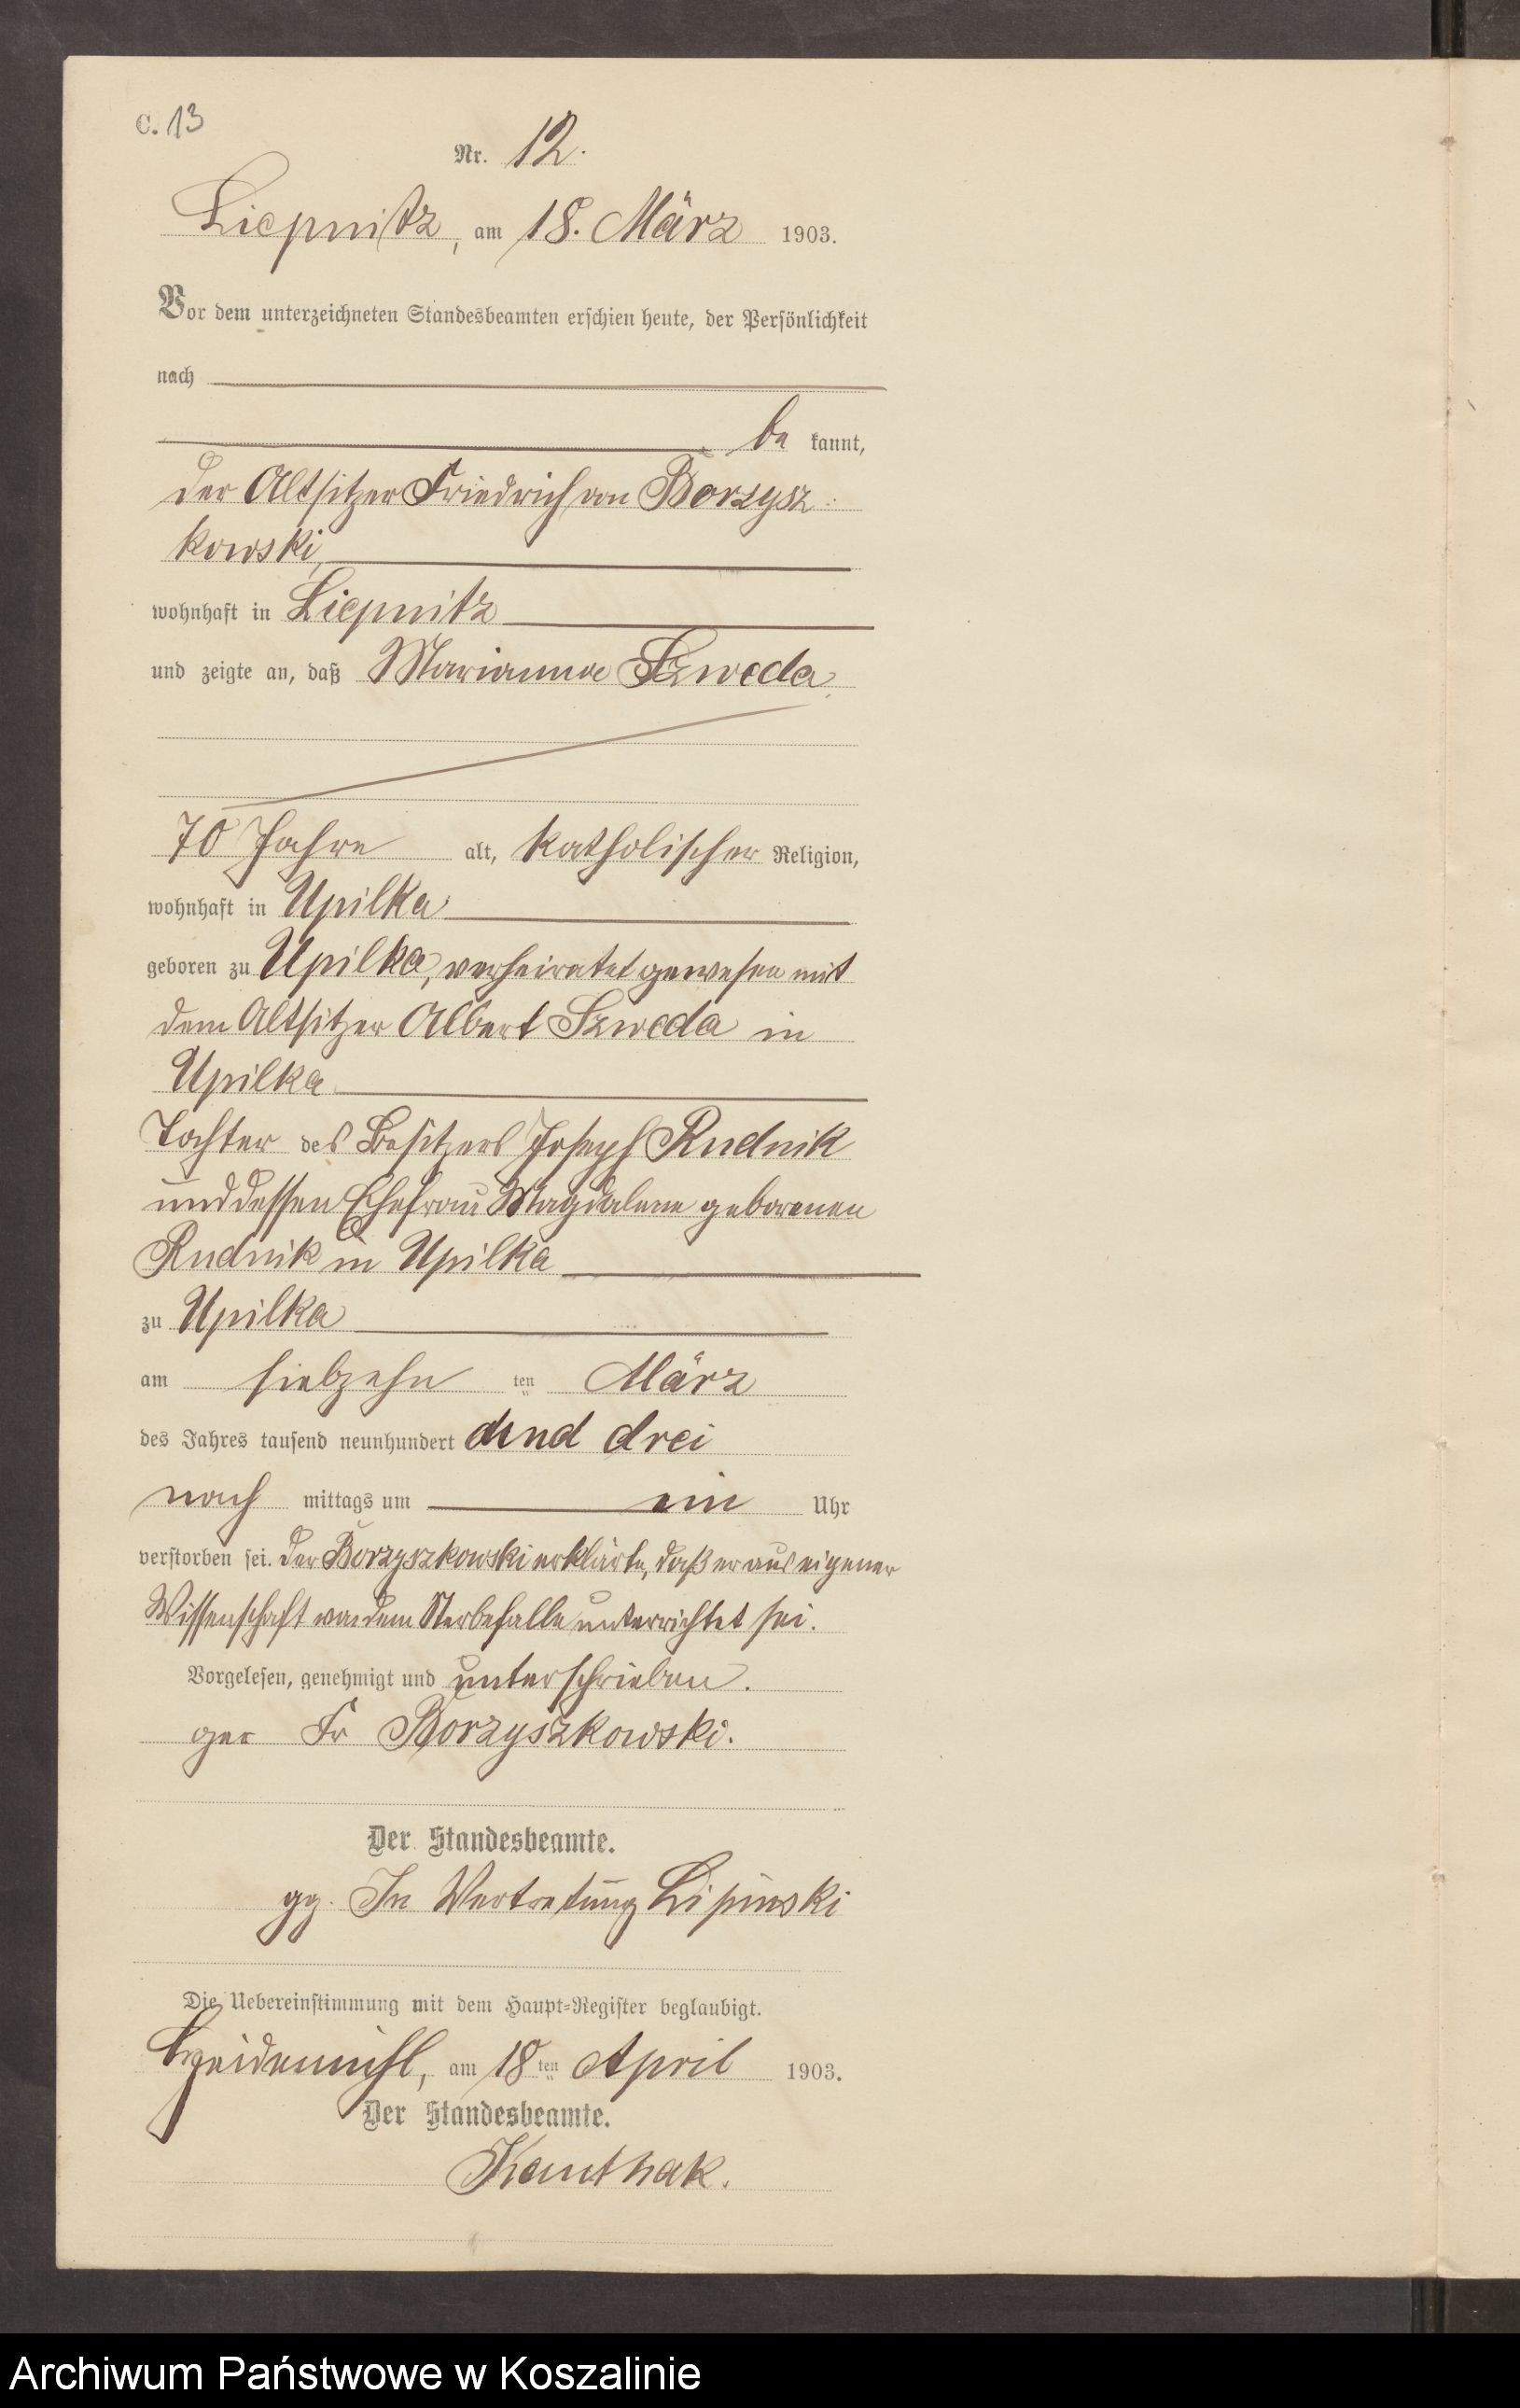 C. 13
Nr. 12.
Liepnitz, am 18. März 1903.
Vor dem unterzeichneten Standesbeamten erschien heute, der Persönlichkeit
nach
be kannt,
der Altsitzer Friedrich von Borzysz-
kowski,
wohnhaft in Liepnitz
und zeigte an, daß Marianna Szweda,
70 Jahre alt, katholischer Religion,
wohnhaft in Upilka
geboren zu Upilka, verheiratet gewesen mit
dem Altsitzer Albert Szweda in
Upilka
Tochter des Besitzers Joseph Rudnik
und dessen Ehefrau Magdalena geborenen
Rudnik in Upilka
zu Upilka
am siebzehn ten März
des Jahres tausend neunhundert und drei
nach mittags um ein Uhr
verstorben sei. Der Borzyszkowski erklärte, daß er aus eigener
Wissenschaft von dem Sterbefalle unterrichtet sei.
Vorgelesen, genehmigt und unterschrieben.
gez Fr Borzyszkowski.
Der Standesbeamte.
gz. In Vertretung Lipinski
Die Uebereinstimmung mit dem Haupt-Register beglaubigt.
am 18ten April 1903.
Der Standesbeamte.
Kanthak.
Archiwum Państwowe w Koszalinie